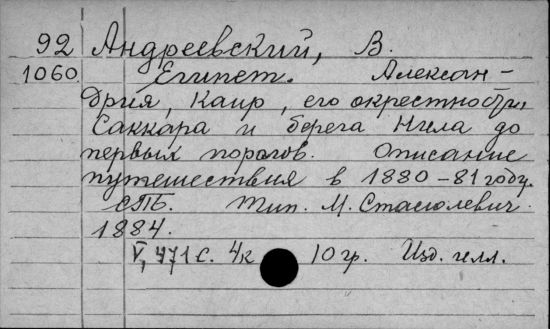 92 Андреевский, В.
1060. Египет. Алексан-
дрия, Каир, его окрестности,
Саккара и берега Нила до
первых порогов. Описание
путешествия в 1880-81 году.
СПБ. Тип. М. Стасюлевич.
1884.
V, 471 с. 4к 10 гр. Изд. илл.